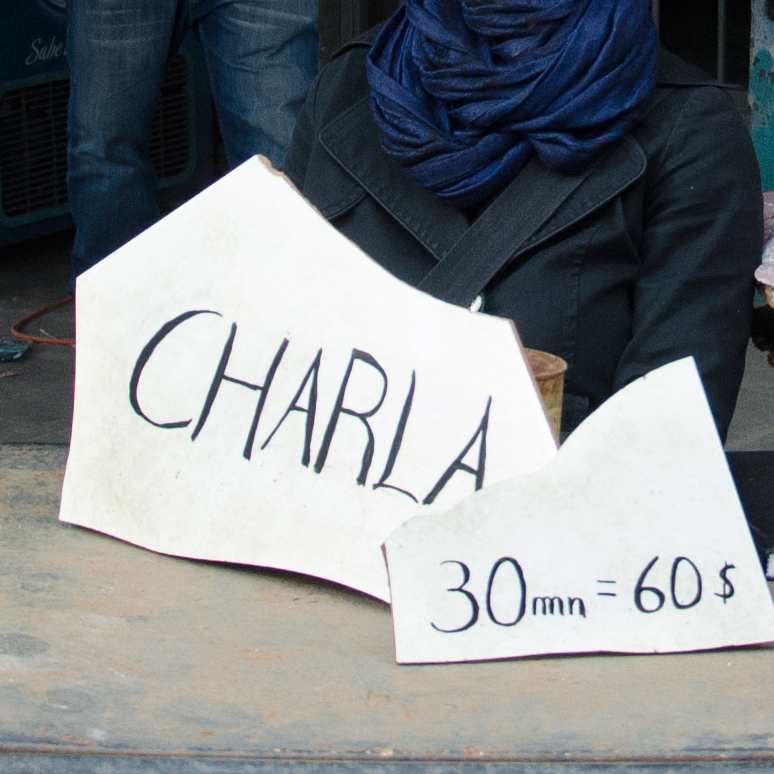 Sabe
CHARLA
30mn = 60$